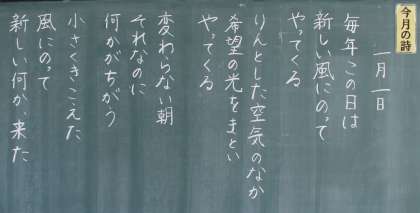 今月の詩
一月一日
毎年この日は
新しい風にのって
やってくる
りんとした空気のなか
希望の光をまとい
やってくる
変わらない朝
それなのに
何かがちがう
小さくきこえた
風にのって
新しい何かが、来た